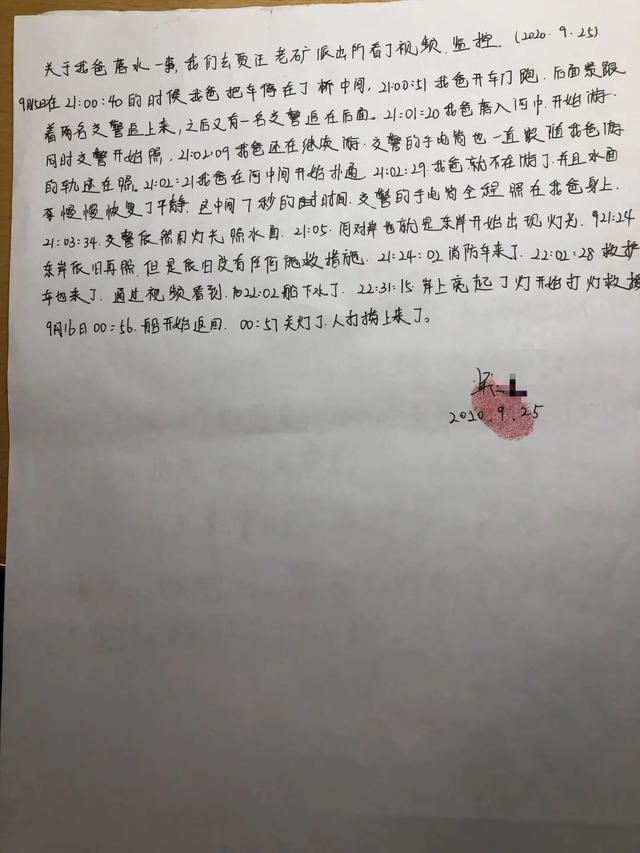 关于我爸落水一事,我们去贾汪老矿派出所看了视频监控.(2020.9.25)
9月15日在21:00:40的时候我爸把车停在了桥中间,21:00:51我爸开车门跑.后面紧跟
着两名交警追上来,之后又有一名交警追在后面.21:01:20我爸落入河中.开始游.
同时交警开始照.21:02:09我爸还在继续游.交警的手电筒也一直跟随我爸游
的轨迹在照.21:02:21我爸在河中间开始扑通.21:02:29.我爸就不在游了.并且水面
慢慢恢复了平静.这中间7秒的时间.交警的手电筒全程照在我爸身上.
21:03:34.交警依然用灯光照水面.21:05.河对岸也就是东岸开始出现灯光.21:24
东岸依旧再照.但是依旧没有任何施救措施.21:24:02消防车来了.22:02:28救护
车也来了.通过视频看到.22:02船下水了.22:31:15.岸上亮起了灯开始打灯救援
9月16日00:56.船开始返回.00:57关灯了.人打捞上来了。
2020.9.25